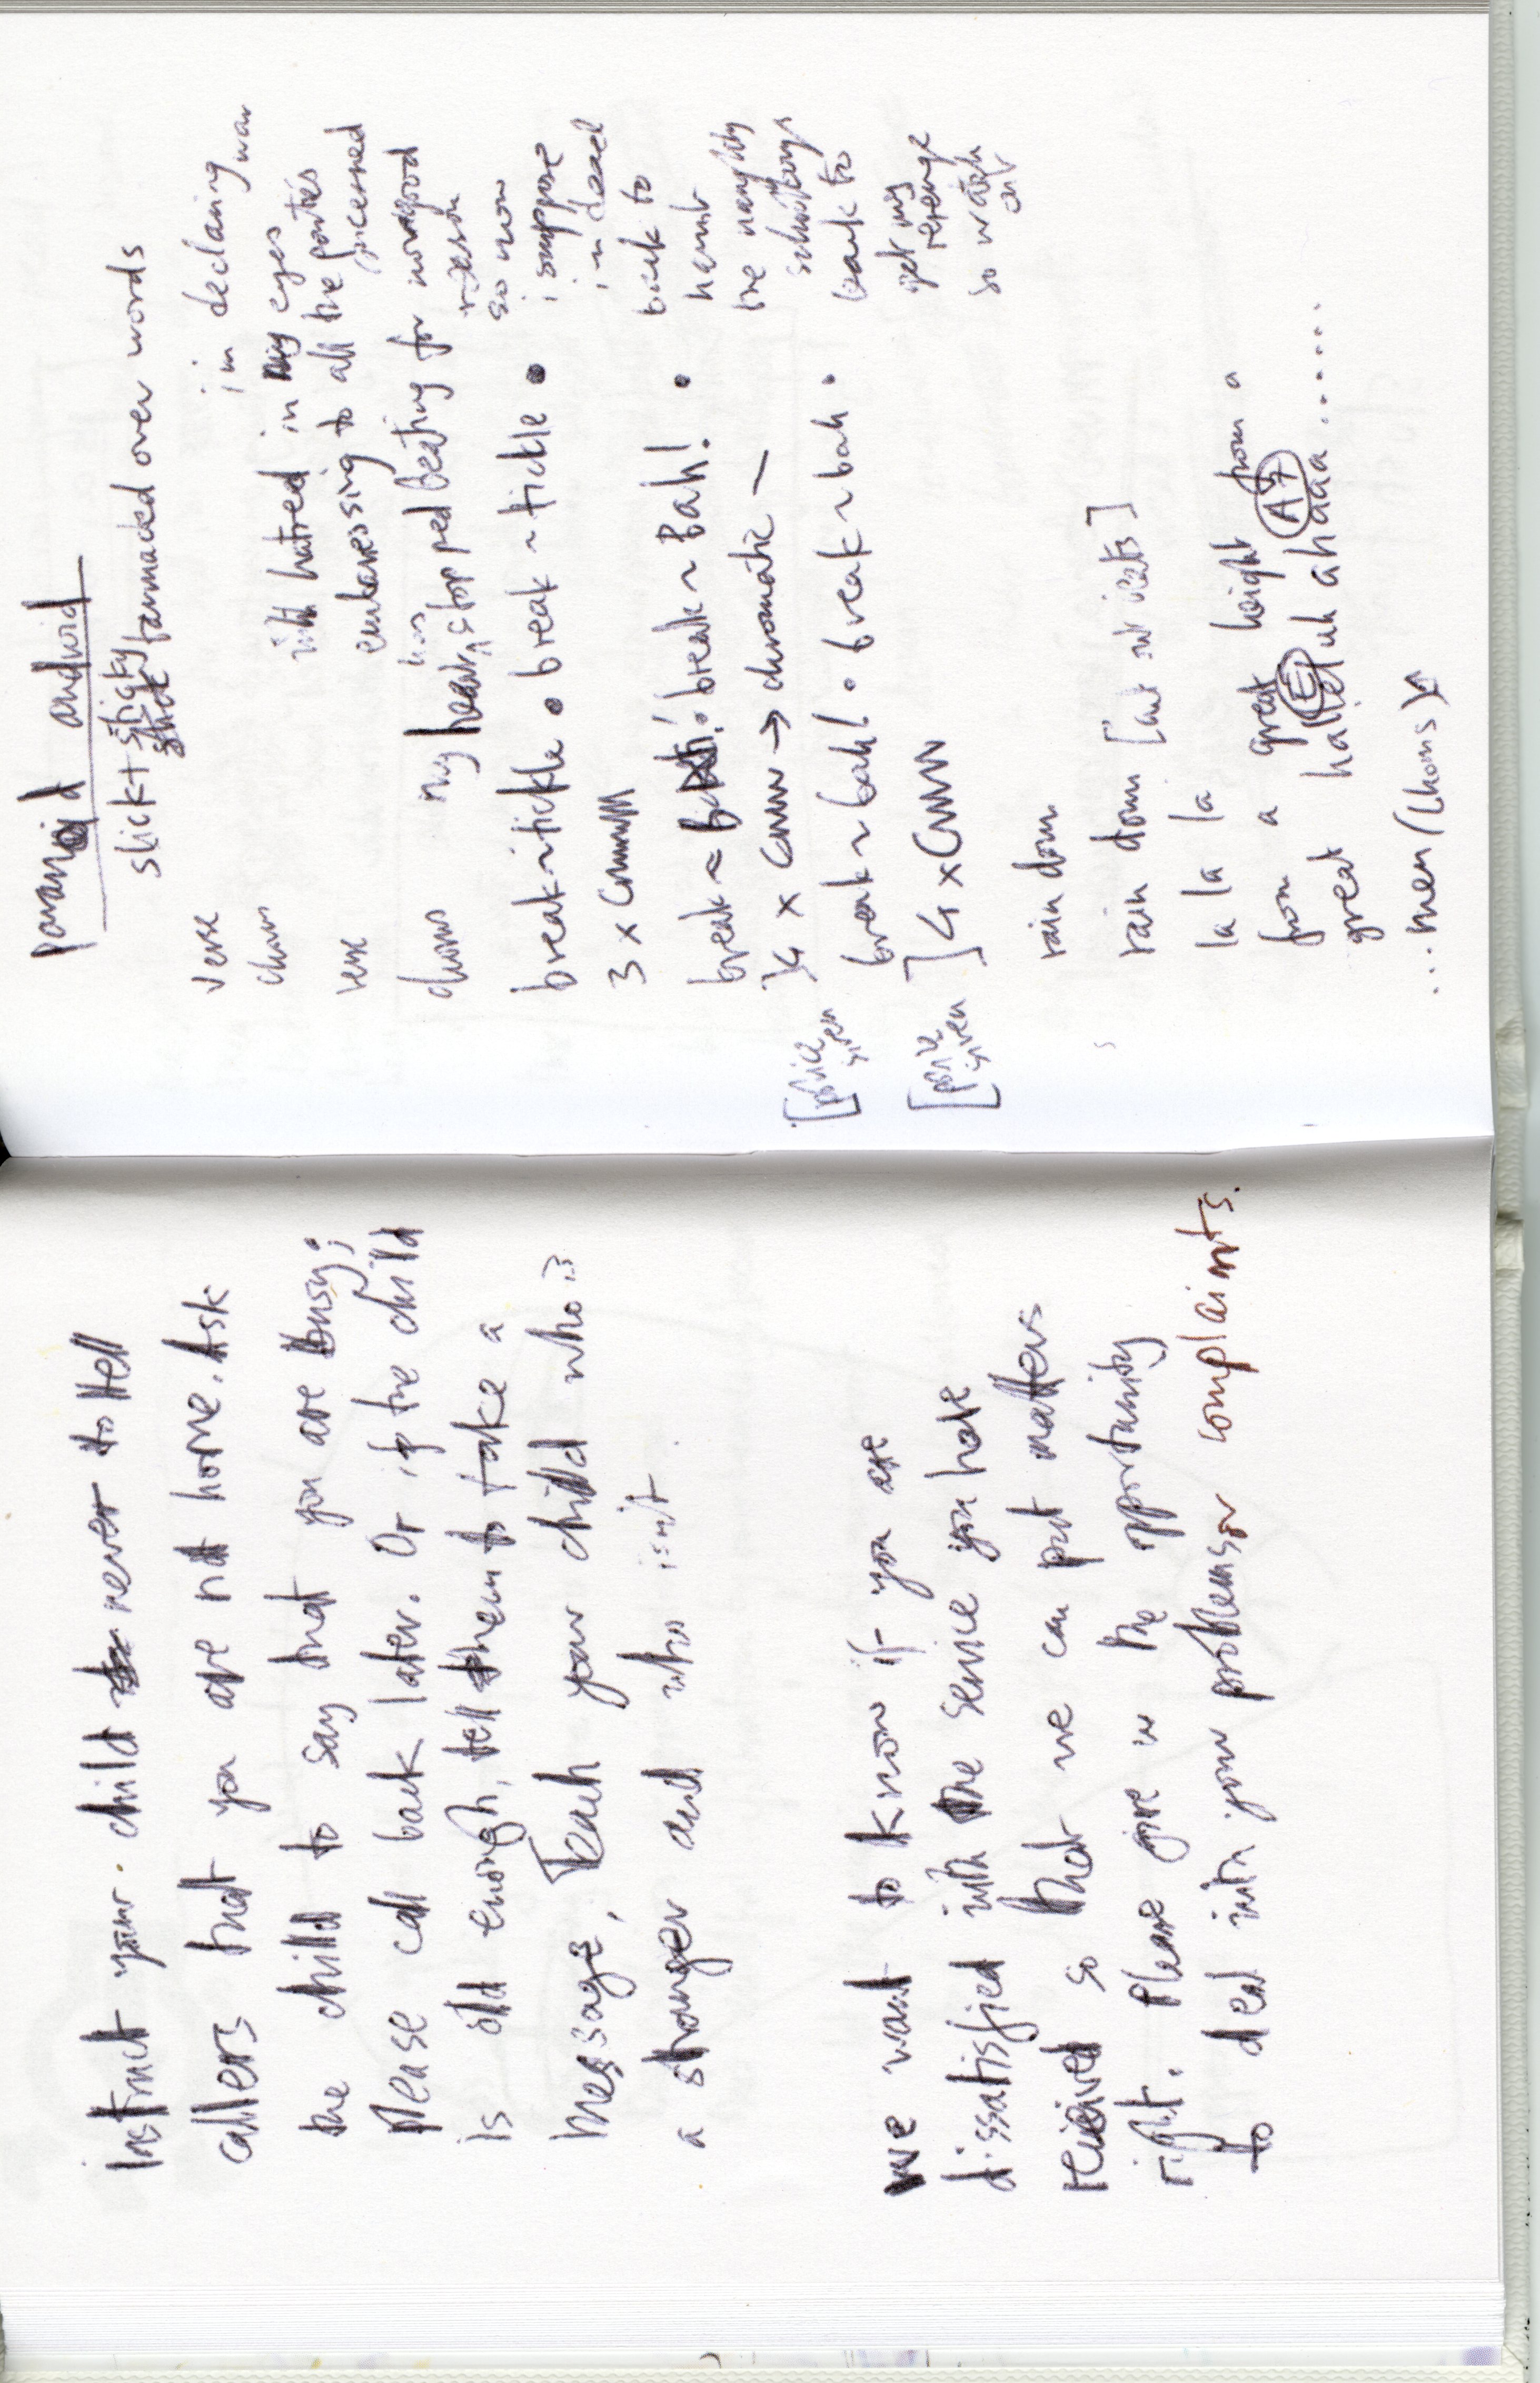 instruct your child never to tell
callers that you are not home. Ask
the child to say that you are busy;
Please call back later. Or if the child
is old enough, tell them to take a
message. Teach your child who is
a stranger and who isn't.
we want to know if you are
dissatisfied with the service you have
received so that we can put matters
right. Please give us the opportunity
to deal with your problems or complaints.
paranoid android
slick + sticky
tarmacked over words
verse
im declaring war
chorus
with hatred in my eyes
verse
embaressing to all the parties concerned
chorus
my heart has stopped beating for no good reason
break ~ tickle • break ~ tickle •
so now
i suppose
im dead
3 x Cmm
back to
haunt
break ~ break ~ Bah! •
the naughty
schoolboys
[police siren] 4 x Cmm → chromatic —
back to
break ~ bah! • break ~ bah •
get my
revenge
[police siren] 4 x Cmm
so watch
out
rain down
rain down
la la la la
from a great height from a
great hallelujah ahaaa ......
E
A7